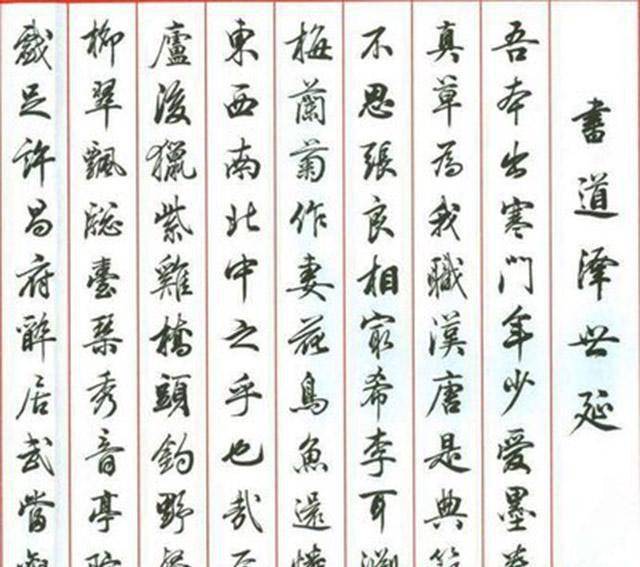 書道澤世延
吾本出寒門年少愛墨
真草為我職漢唐是典
不思張良相寂希李耳
梅蘭菊作妻花鳥魚還
東西南北中之乎也哉
盧後獵紫雞橋頭釣野
柳翠飄臺琴秀音亭
戲足許昌府醉居武當